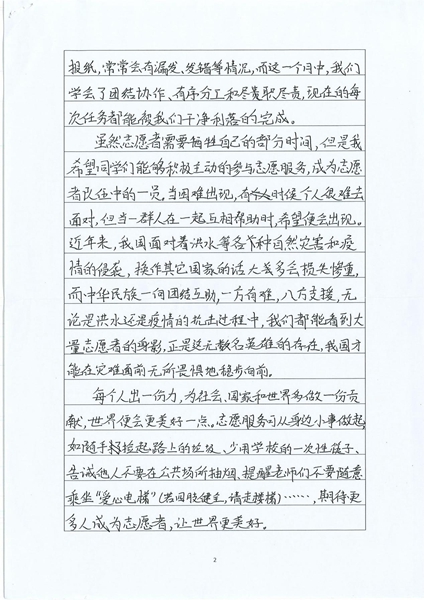 报纸,常常会有漏发、发错等情况,而这一个月中,我们
学会了团结协作、有序分工和尽责职尽责,现在的每
次任务都能被我们干净利落的完成。
虽然志愿者需要牺牲自己的部分时间,但是我
希望同学们能够积极主动的参与志愿服务,成为志愿
者队伍中的一员。当困难出现,有时候个人很难去
面对,但当一群人在一起互相帮助时,希望便会出现。
近年来,我国面对着洪水等各种自然灾害和疫
情的侵袭,换作其它国家的话大多会损失惨重,
而中华民族一向团结互助,一方有难,八方支援,无
论是洪水还是疫情的抗击过程中,我们都能看到大
量志愿者的身影,正是这无数名英雄的存在,我国才
能在灾难面前无所畏惧地稳步向前。
每个人出一份力,为社会、国家和世界多做一份贡
献,世界便会更美好一点。志愿服务可从身边小事做起,
如随手捡起路上的垃圾、少用学校的一次性筷子、
告诫他人不要在公共场所抽烟、提醒老师们不要随意
乘坐“爱心电梯”(若四肢健全,请走楼梯)……,期待更
多人成为志愿者,让世界更美好。
2